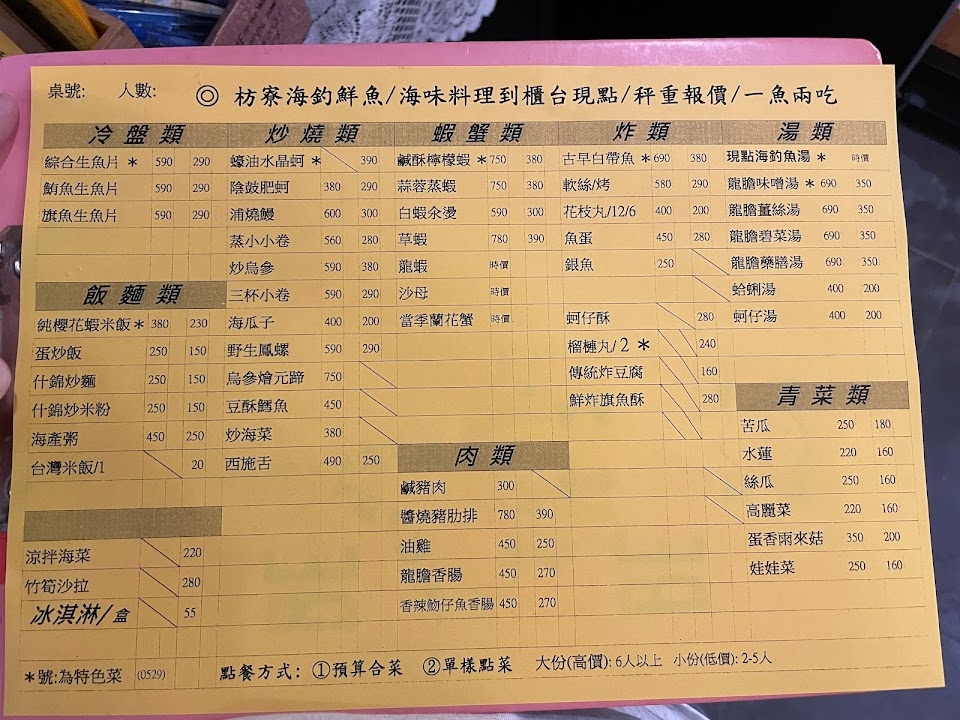 桌號: 人數: ◎ 枋寮海釣鮮魚/海味料理到櫃台現點/秤重報價/一魚兩吃
冷盤類
綜合生魚片＊ 590 290
鮪魚生魚片 590 290
旗魚生魚片 590 290
飯麵類
純櫻花蝦米飯＊ 380 230
蛋炒飯 250 150
什錦炒麵 250 150
什錦炒米粉 250 150
海產粥 450 250
台灣米飯/1 20
涼拌海菜 220
竹筍沙拉 280
冰淇淋/盒 55
炒燒類
蠔油水晶蚵＊ 390
陰鼓肥蚵 380 290
浦燒鰻 600 300
蒸小小卷 560 280
炒烏參 590 380
三杯小卷 590 290
海瓜子 400 200
野生鳳螺 590 290
烏參燴元蹄 750
豆酥鱈魚 450
炒海菜 380
西施舌 490 250
蝦蟹類
鹹酥檸檬蝦＊ 750 380
蒜蓉蒸蝦 750 380
白蝦汆燙 590 300
草蝦 780 390
龍蝦 時價
沙母 時價
當季蘭花蟹 時價
肉類
鹹豬肉 300
醬燒豬肋排 780 390
油雞 450 250
龍膽香腸 450 270
香辣魩仔魚香腸 450 270
炸類
古早白帶魚＊ 690 380
軟絲/烤 580 290
花枝丸/12/6 400 200
魚蛋 450 280
銀魚 250
蚵仔酥 280
榴槤丸/2＊ 240
傳統炸豆腐 160
鮮炸旗魚酥 280
湯類
現點海釣魚湯＊ 時價
龍膽味噌湯＊ 690 350
龍膽薑絲湯 690 350
龍膽碧菜湯 690 350
龍膽藥膳湯 690 350
蛤蜊湯 400 200
蚵仔湯 400 200
青菜類
苦瓜 250 180
水蓮 220 160
絲瓜 250 160
高麗菜 220 160
蛋香雨來菇 350 200
娃娃菜 250 160
＊號:為特色菜 (0529) 點餐方式: ①預算合菜 ②單樣點菜 大份(高價): 6人以上 小份(低價): 2-5人